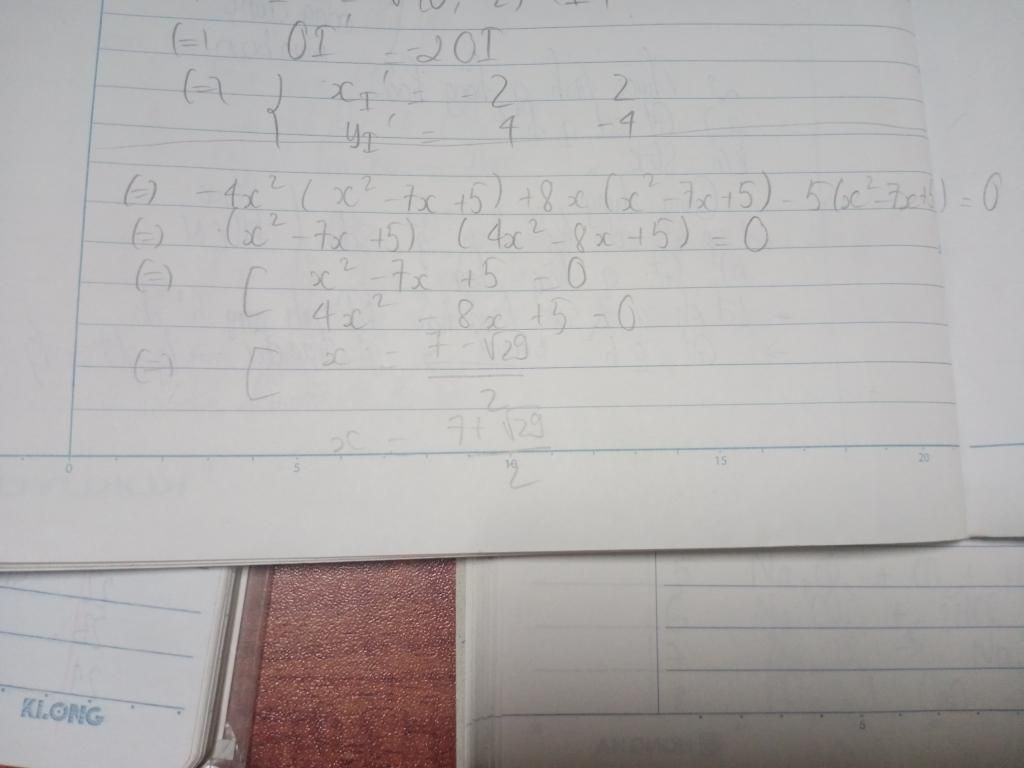 (=) OI' = -2OI
(=) { x_I' = 2 2
y_I' = 4 -4
(=) -4x² (x² -7x +5) +8x (x² -7x +5) - 5(x² -7x+5) = 0
(=) (x² -7x +5) (4x² -8x +5) = 0
(=) [ x² -7x +5 = 0
4x² - 8x +5 = 0
(=) [ x = 7 - √29
2
x = 7 + √29
2
0 5 10 15 20
KLONG